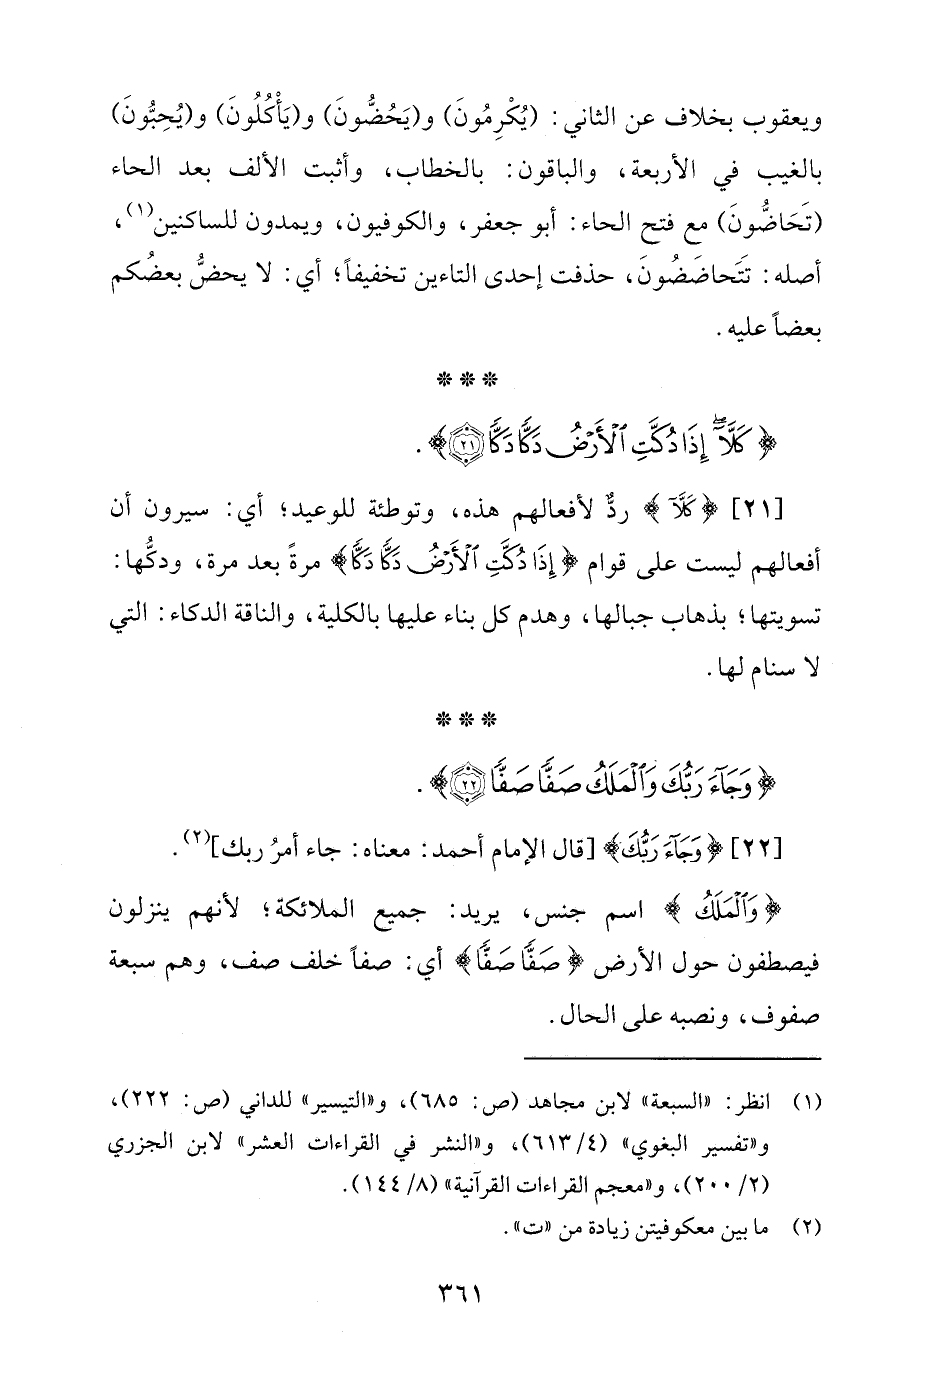 ويعقوب بخلاف عن الثاني: (يُكْرِمُونَ) و(يَحُضُّونَ) و(يَأْكُلُونَ) و(يُحِبُّونَ)
بالغيب في الأربعة، والباقون: بالخطاب، وأثبت الألف بعد الحاء
(تَحَاضُّونَ) مع فتح الحاء: أبو جعفر، والكوفيون، ويمدون للساكنين(١)،
أصله: تَتَحاضَضُونَ، حذفت إحدى التاءين تخفيفاً؛ أي: لا يحضُّ بعضُكم
بعضاً عليه.
* * *
﴿ كَلَّآۖ إِذَا دُكَّتِ ٱلْأَرْضُ دَكًّا دَكًّا ٢١﴾.
[٢١] ﴿ كَلَّآ ﴾ ردٌّ لأفعالهم هذه، وتوطئة للوعيد؛ أي: سيرون أن
أفعالهم ليست على قوام ﴿ إِذَا دُكَّتِ ٱلْأَرْضُ دَكًّا دَكًّا﴾ مرةً بعد مرة، ودكُّها:
تسويتها؛ بذهاب جبالها، وهدم كل بناء عليها بالكلية، والناقة الدكاء: التي
لا سنام لها.
* * *
﴿ وَجَآءَ رَبُّكَ وَٱلْمَلَكُ صَفًّا صَفًّا ٢٢﴾.
[٢٢] ﴿ وَجَآءَ رَبُّكَ﴾ [قال الإمام أحمد: معناه: جاء أمرُ ربك](٢).
﴿ وَٱلْمَلَكُ ﴾ اسم جنس، يريد: جميع الملائكة؛ لأنهم ينزلون
فيصطفون حول الأرض ﴿ صَفًّا صَفًّا﴾ أي: صفاً خلف صف، وهم سبعة
صفوف، ونصبه على الحال.
(١) انظر: «السبعة» لابن مجاهد (ص: ٦٨٥)، و«التيسير» للداني (ص: ٢٢٢)،
و«تفسير البغوي» (٤/ ٦١٣)، و«النشر في القراءات العشر» لابن الجزري
(٢/ ٢٠٠)، و«معجم القراءات القرآنية» (٨/ ١٤٤).
(٢) ما بين معكوفيتن زيادة من «ت».
٣٦١